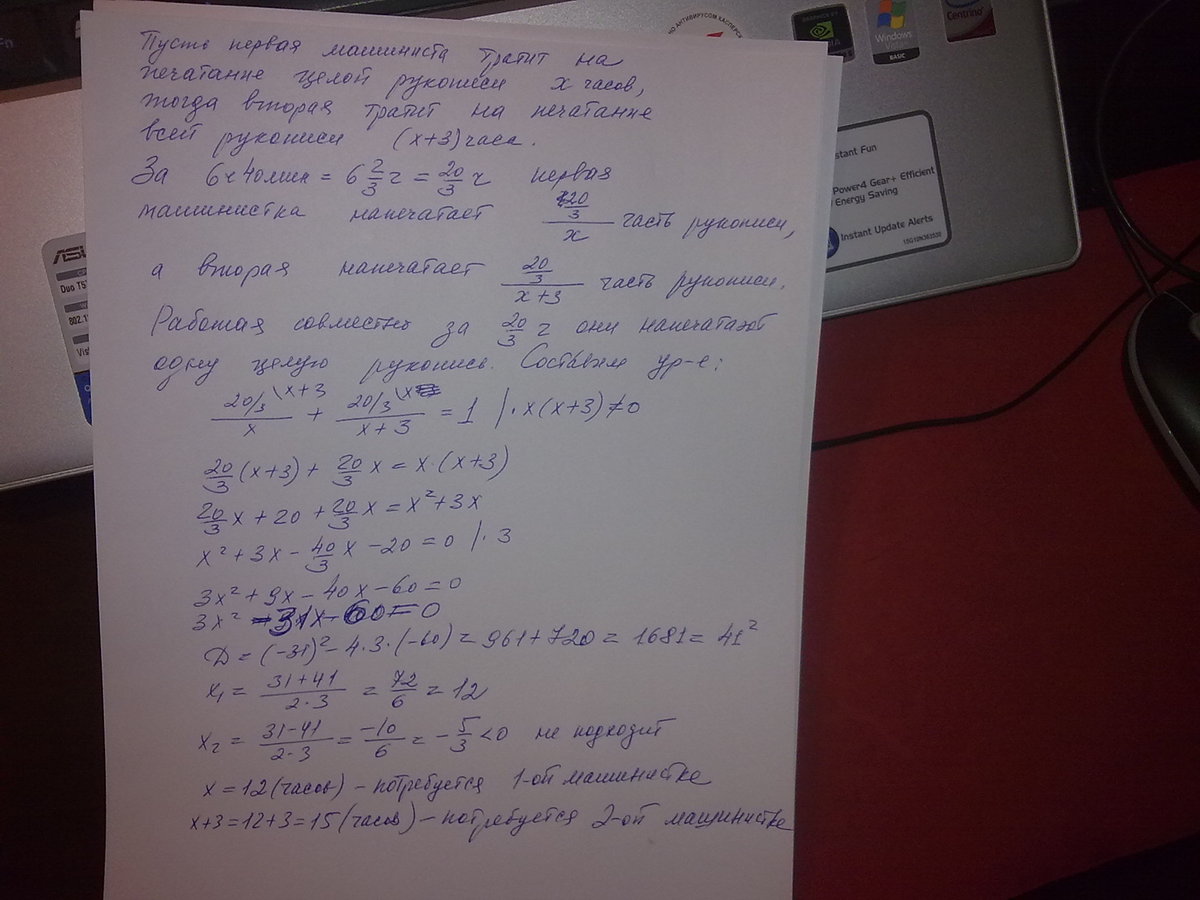 Пусть первая машиниста тратит на
печатание целой рукописи x часов,
тогда вторая тратит на печатание
всей рукописи (x+3) часа.
За 6ч 40мин = 6 2/3 ч = 20/3 ч первая
машинистка напечатает (20/3)/x часть рукописи,
а вторая напечатает (20/3)/(x+3) часть рукописи.
Работая совместно за 20/3 ч они напечатают
одну целую рукопись. Составим ур-е:
(20/3)/x \x+3 + (20/3)/(x+3) \x = 1 | · x(x+3) ≠ 0
20/3 (x+3) + 20/3 x = x·(x+3)
20/3 x + 20 + 20/3 x = x² + 3x
x² + 3x − 40/3 x − 20 = 0 | · 3
3x² + 9x − 40x − 60 = 0
3x² − 31x − 60 = 0
D = (−31)² − 4·3·(−60) = 961 + 720 = 1681 = 41²
x₁ = (31+41)/(2·3) = 72/6 = 12
x₂ = (31−41)/(2·3) = −10/6 = −5/3 < 0 не подходит
x = 12 (часов) – потребуется 1-ой машинистке
x+3 = 12+3 = 15 (часов) – потребуется 2-ой машинистке
НО АНТИВИРУСОМ КАСПЕРСК
NVIDIA
Windows
Vista
BASIC
Centrino
Instant Fun
Power4 Gear+ Efficient
Energy Saving
Instant Update Alerts
ASUS
Duo T5
802.1
Vist
Fn